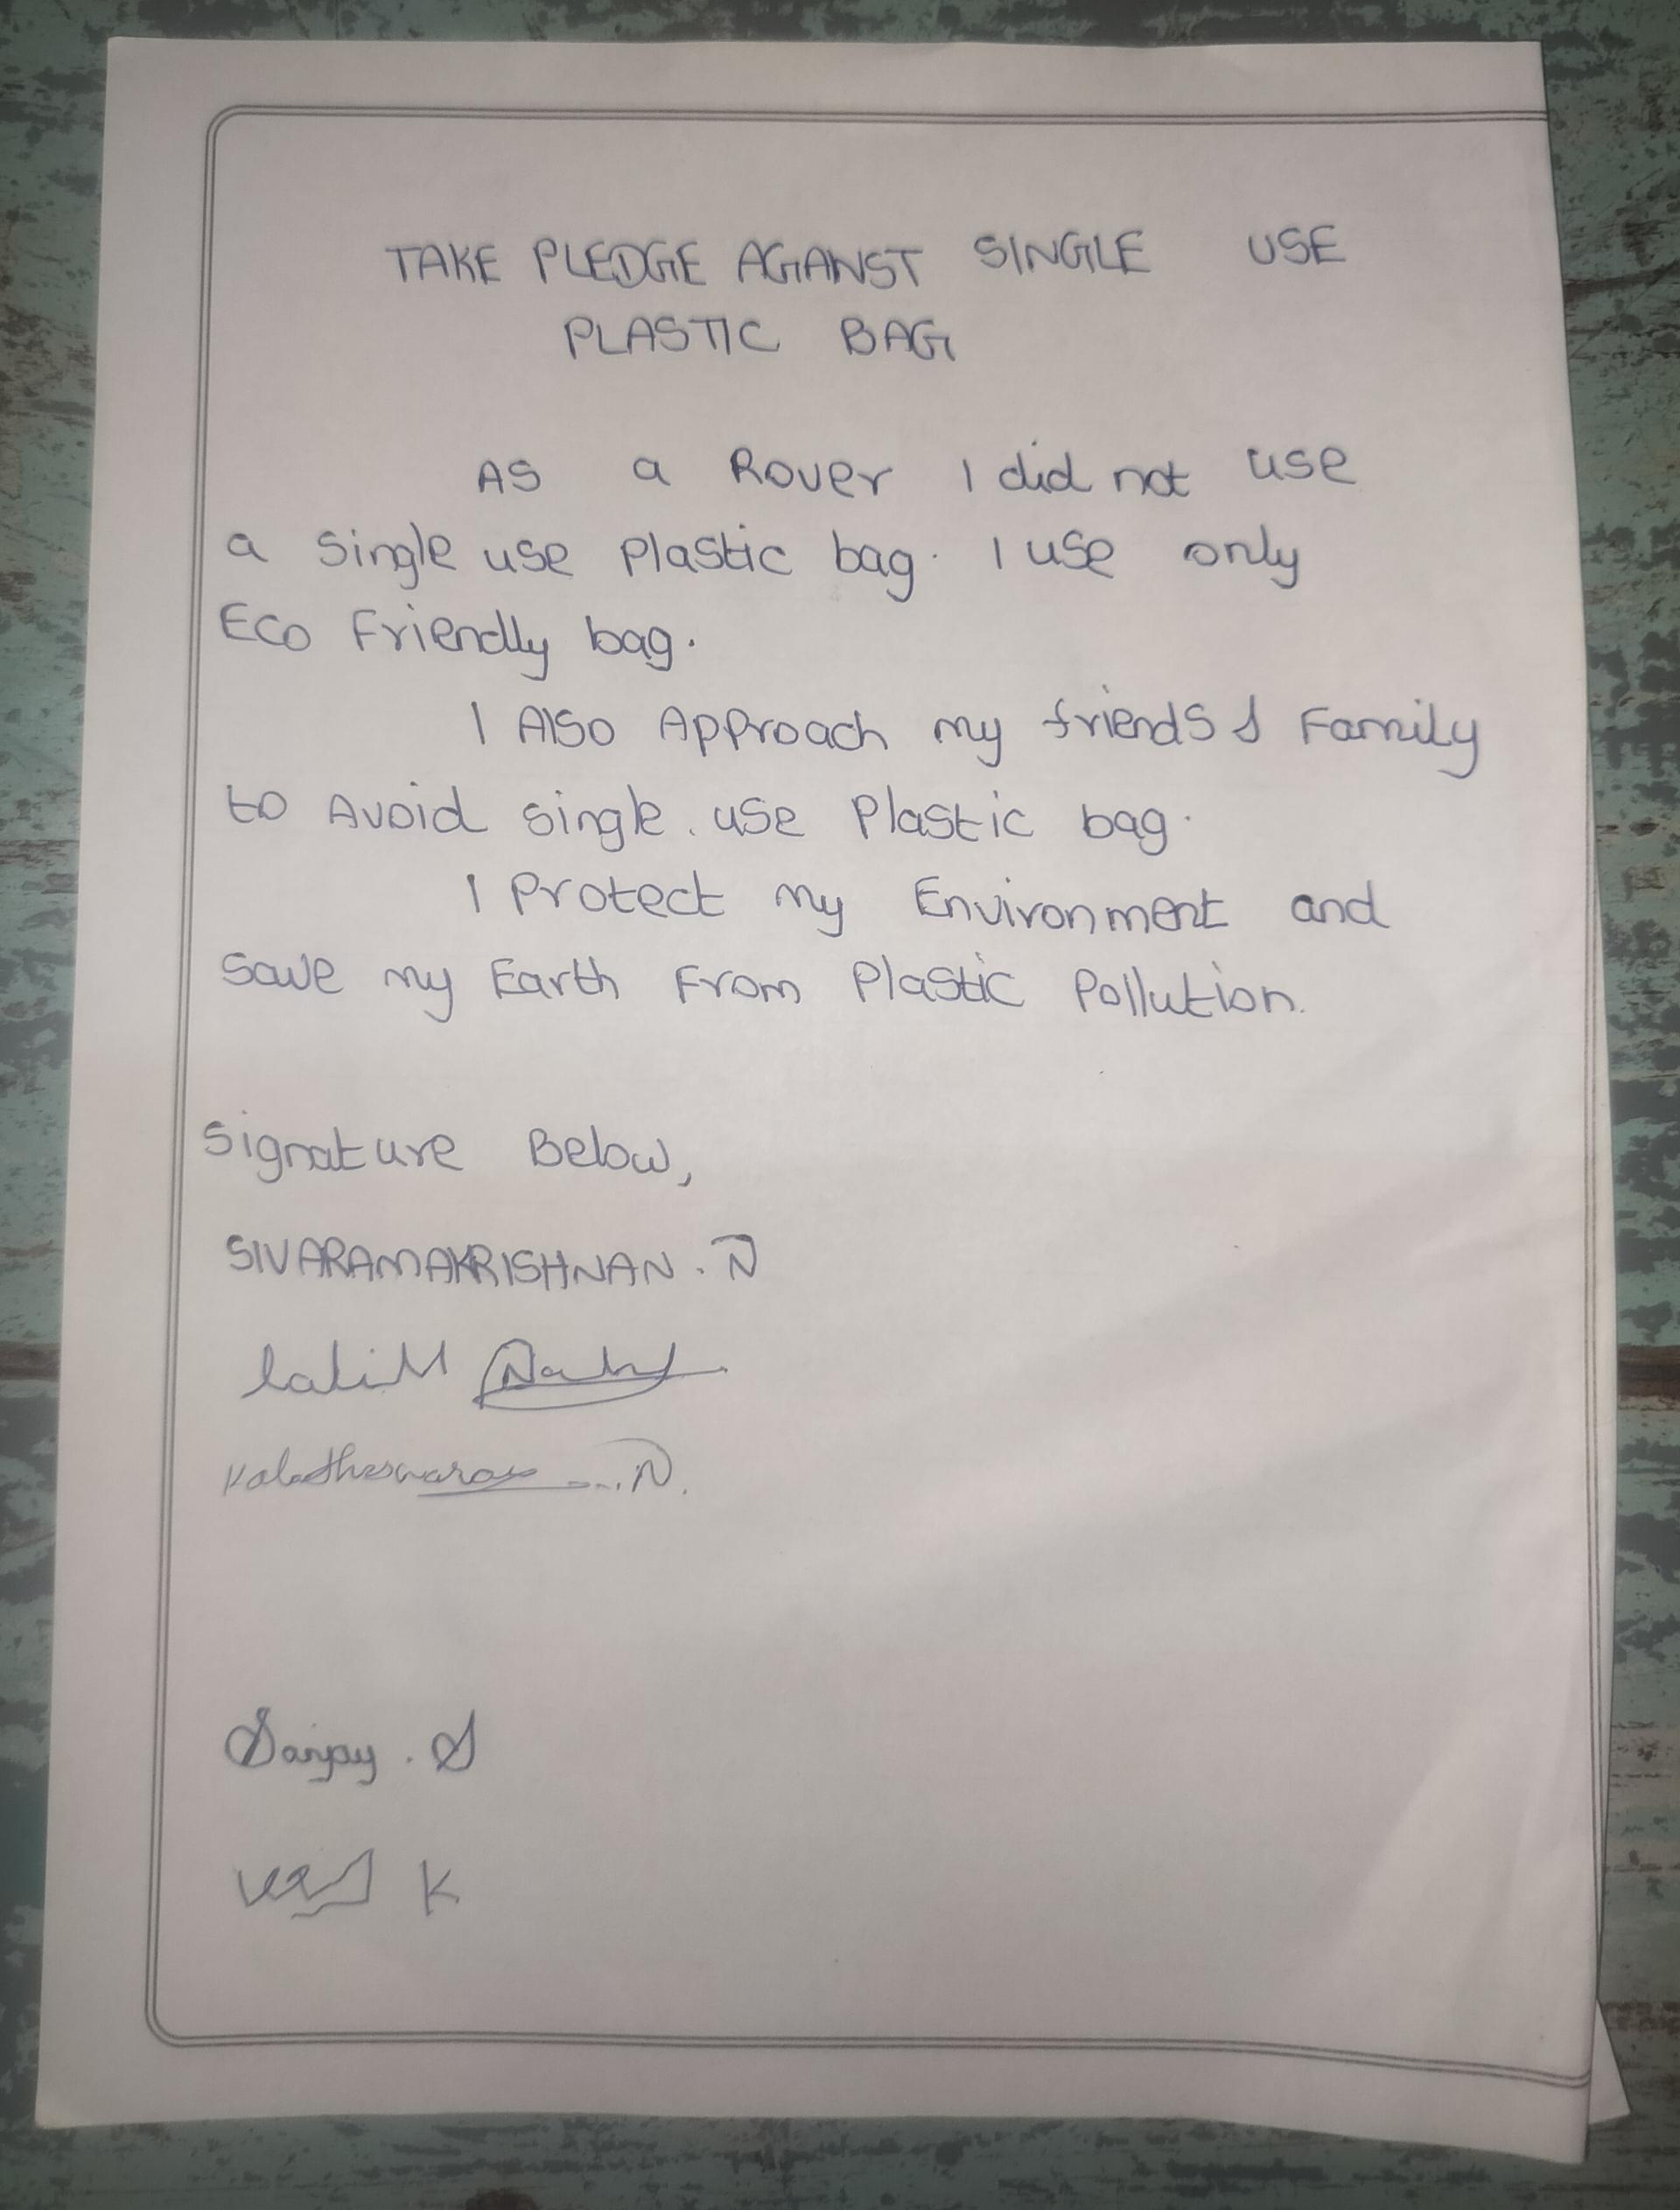 TAKE PLEDGE AGANST SINGLE USE
PLASTIC BAG
AS a Rover I did not use
a single use plastic bag. I use only
Eco Friendly bag.
I Also Approach my friends & Family
to Avoid single. use Plastic bag.
I Protect my Environment and
save my Earth From Plastic Pollution.
Signature Below,
SIVARAMAKRISHNAN. N
Sanjay. S
K